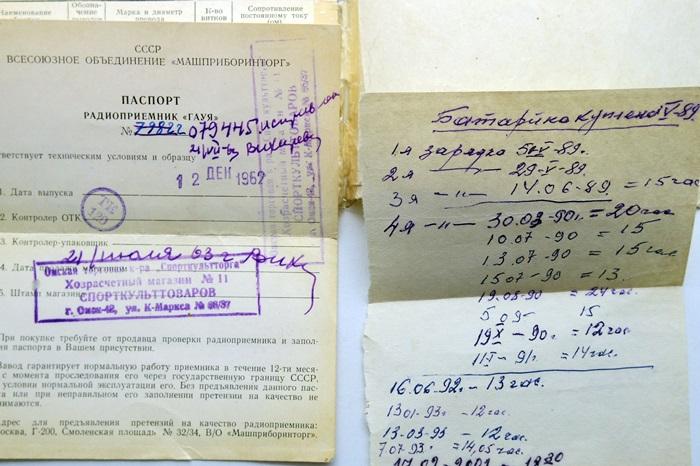 Наименование
Марка и диаметр провода
К-во витков
Сопротивление постоянному току
СССР
ВСЕСОЮЗНОЕ ОБЪЕДИНЕНИЕ «МАШПРИБОРИНТОРГ»
ПАСПОРТ
РАДИОПРИЕМНИК «ГАУЯ»
№ 79822 079445
ответствует техническим условиям и образцу
12 ДЕК 1962
1. Дата выпуска
2. Контролер ОТК
3. Контролер-упаковщик
21 июля 63 г
4. Дата
5. Штамп магазина
Хозрасчетный магазин № 11
СПОРТКУЛЬТТОВАРОВ
г. Омск-42, ул. К-Маркса № 35/37
При покупке требуйте от продавца проверки радиоприемника и запол-
ния паспорта в Вашем присутствии.
Завод гарантирует нормальную работу приемника в течение 12-ти меся-
с момента проследования его через государственную границу СССР,
условии нормальной эксплуатации его. Без предъявления данного пас-
та или при неправильном его заполнении претензии на качество не
нимаются.
Адрес для предъявления претензий на качество радиоприемника:
осква, Г-200, Смоленская площадь № 32/34, В/О «Машприборинторг».
Батарейка куплена V-89
1я зарядка
2я 29-V-89.
3я -"- 14.06-89. = 15 час
4я -"- 30.03-90г. = 20 час
10.07-90 = 15
13.07-90 = 15 час
15.07-90 = 13.
19.08-90 = 24 час.
5.09- 15
19X-90г = 12 час
11I-91г = 14 час.
16.06.92г. - 13 час.
13.01-93г - 12 час.
13-03-93 - 12 час.
7.07.93г. = 14,05 час.